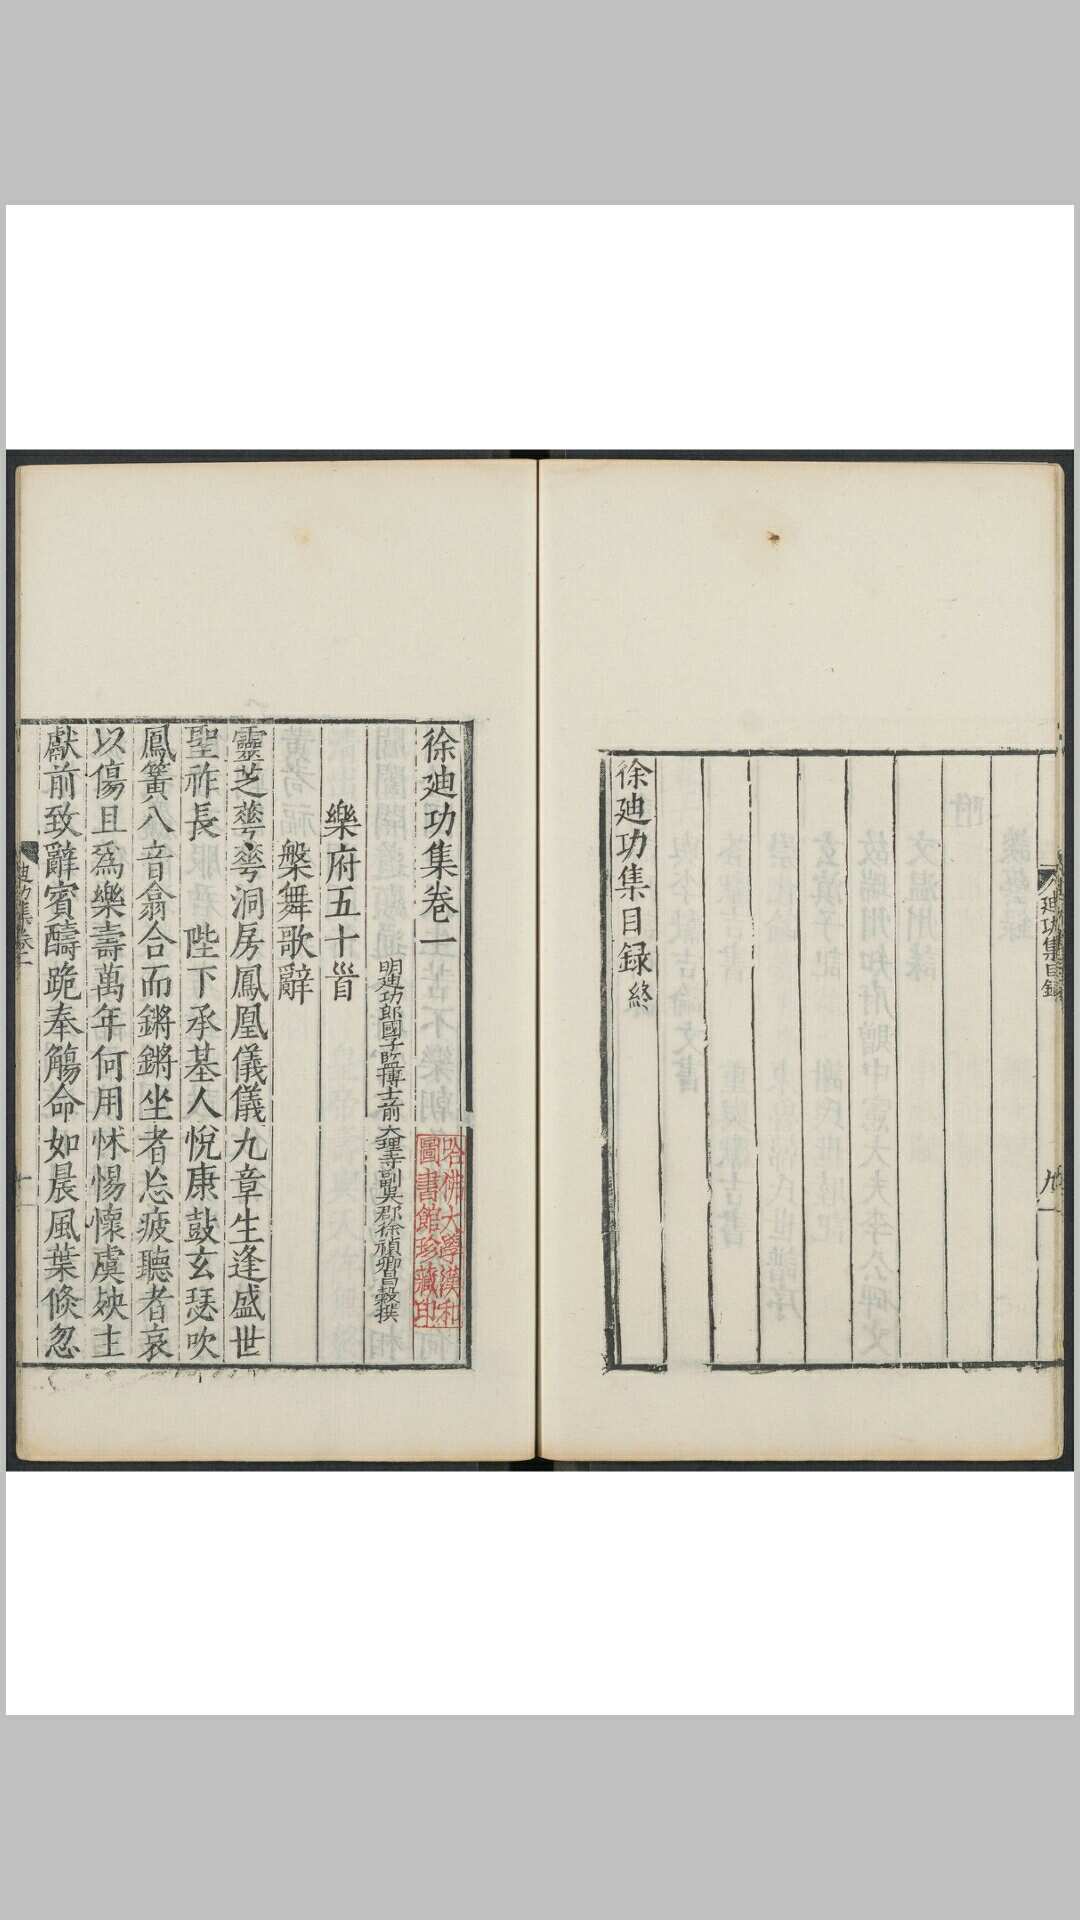 迪功集目錄
九
徐迪功集目録終
徐迪功集卷一
明迪功郎國子監博士前大理寺副吳郡徐禎卿昌穀撰
哈佛大學漢和
圖書館珍藏印
樂府五十首
槃舞歌辭
靈芝華華洞房鳳凰儀儀九章生逢盛世
聖祚長 陛下承基人悅康鼓玄瑟吹
鳳簧八音翕合而鏘鏘坐者忘疲聽者哀
以傷且爲樂壽萬年何用怵惕懷虞殃主
獻前致辭賓醻跪奉觴命如晨風葉倐忽
迪功集卷一
一